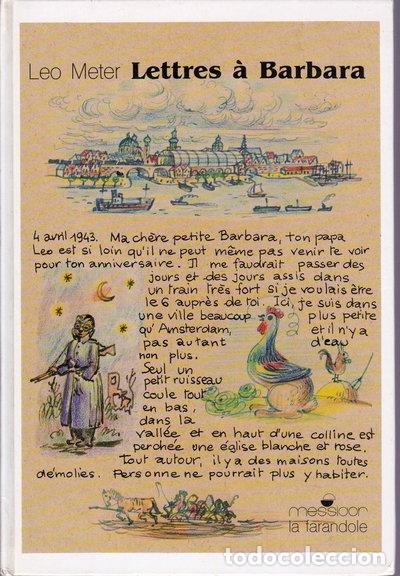 Leo Meter Lettres à Barbara
4 avril 1943. Ma chère petite Barbara, ton papa
Leo est si loin qu'il ne peut même pas venir te voir
pour ton anniversaire. Il me faudrait passer des
jours et des jours assis dans
un train très fort si je voulais être
le 6 auprès de toi. Ici, je suis dans
une ville beaucoup plus petite
qu'Amsterdam, et il n'y a
pas autant d'eau
non plus.
Seul un
petit ruisseau
coule tout
en bas,
dans la
vallée et en haut d'une colline est
perchée une église blanche et rose.
Tout autour, il y a des maisons toutes
démolies. Personne ne pourrait plus y habiter.
messidor
la farandole
todocoleccion
todocoleccion.net